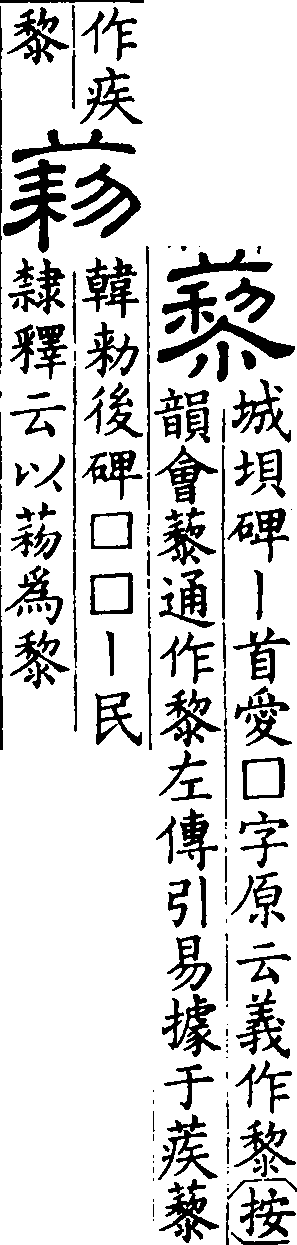 藜
城垻碑丨首愛□字原云義作黎按
韻會藜通作黎左傳引易據于蒺藜
作疾
黎
韓勑後碑□□丨民
隸釋云以爲黎